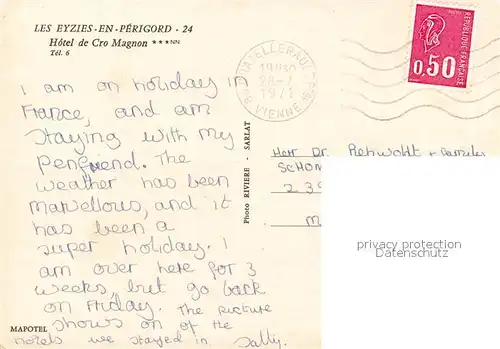 LES EYZIES-EN-PÉRIGORD - 24
Hôtel de Cro Magnon ★★★NN
Tél. 6
I am on holiday in
France, and am
staying with my
penfriend. The
weather has been
marvellous, and it
has been a
super holiday. I
am over here for 3
weeks, but go back
on Friday. The picture
shows on of the
hotels we stayed in. Sally.
MAPOTEL
Photo RIVIERE - SARLAT
CHATELLERAULT
19H30
28-7
197
VIENNE
0,50
RÉPUBLIQUE FRANÇAISE
Herr Dr. Rehwohlt + Family
SCHON
239
M
privacy protection
Datenschutz